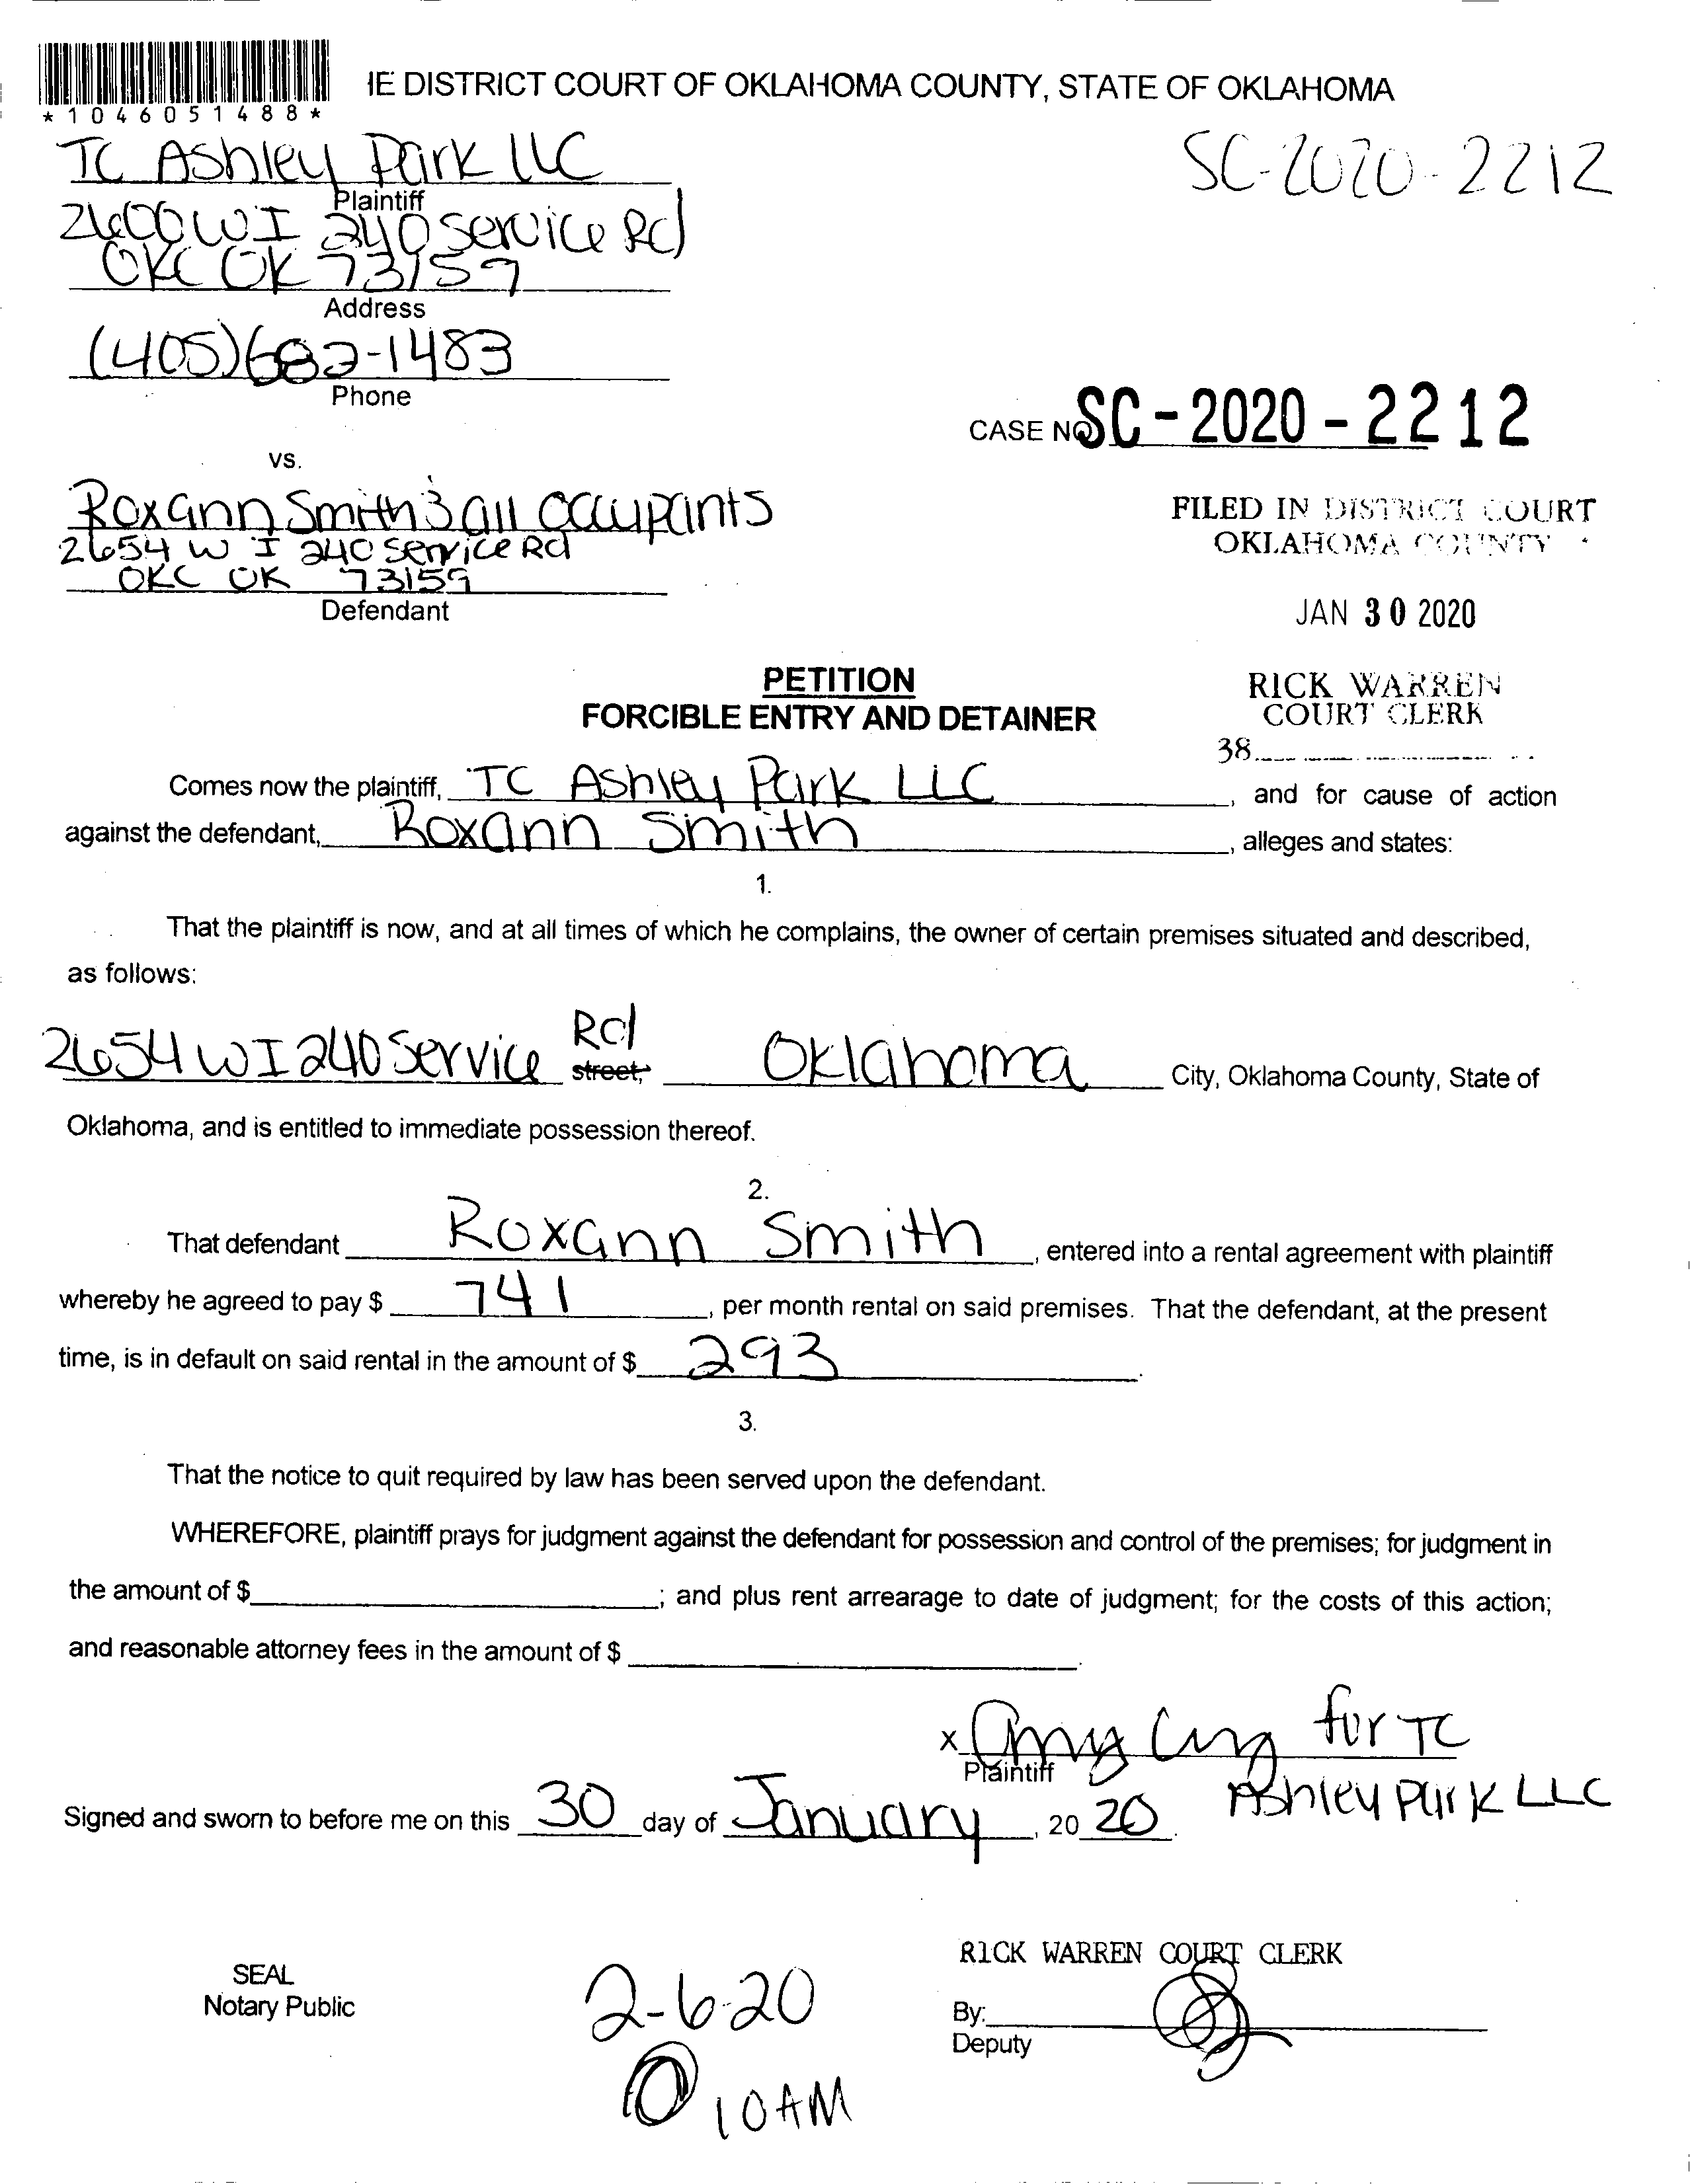 *1046051488*
IE DISTRICT COURT OF OKLAHOMA COUNTY, STATE OF OKLAHOMA
TC Ashley Park LLC
SC-2020-2212
Plaintiff
2600 W I 240 Service Rd
OKC OK 73159
Address
(405)682-1483
Phone
CASE NO. SC-2020-2212
vs.
Roxann Smith & all occupants
2654 W I 240 Service Rd
OKC OK 73159
Defendant
FILED IN DISTRICT COURT
OKLAHOMA COUNTY
JAN 30 2020
RICK WARREN
COURT CLERK
38
PETITION
FORCIBLE ENTRY AND DETAINER
Comes now the plaintiff, TC Ashley Park LLC, and for cause of action
against the defendant, Roxann Smith, alleges and states:
1.
That the plaintiff is now, and at all times of which he complains, the owner of certain premises situated and described,
as follows:
2654 W I 240 Service Rd street, Oklahoma City, Oklahoma County, State of
Oklahoma, and is entitled to immediate possession thereof.
2.
That defendant Roxann Smith, entered into a rental agreement with plaintiff
whereby he agreed to pay $ 741, per month rental on said premises. That the defendant, at the present
time, is in default on said rental in the amount of $ 293.
3.
That the notice to quit required by law has been served upon the defendant.
WHEREFORE, plaintiff prays for judgment against the defendant for possession and control of the premises; for judgment in
the amount of $ ; and plus rent arrearage to date of judgment; for the costs of this action;
and reasonable attorney fees in the amount of $ .
x Amy for TC
Plaintiff
Ashley Park LLC
Signed and sworn to before me on this 30 day of January, 20 20.
SEAL
Notary Public
2-6-20
@ 10AM
RICK WARREN COURT CLERK
By:
Deputy